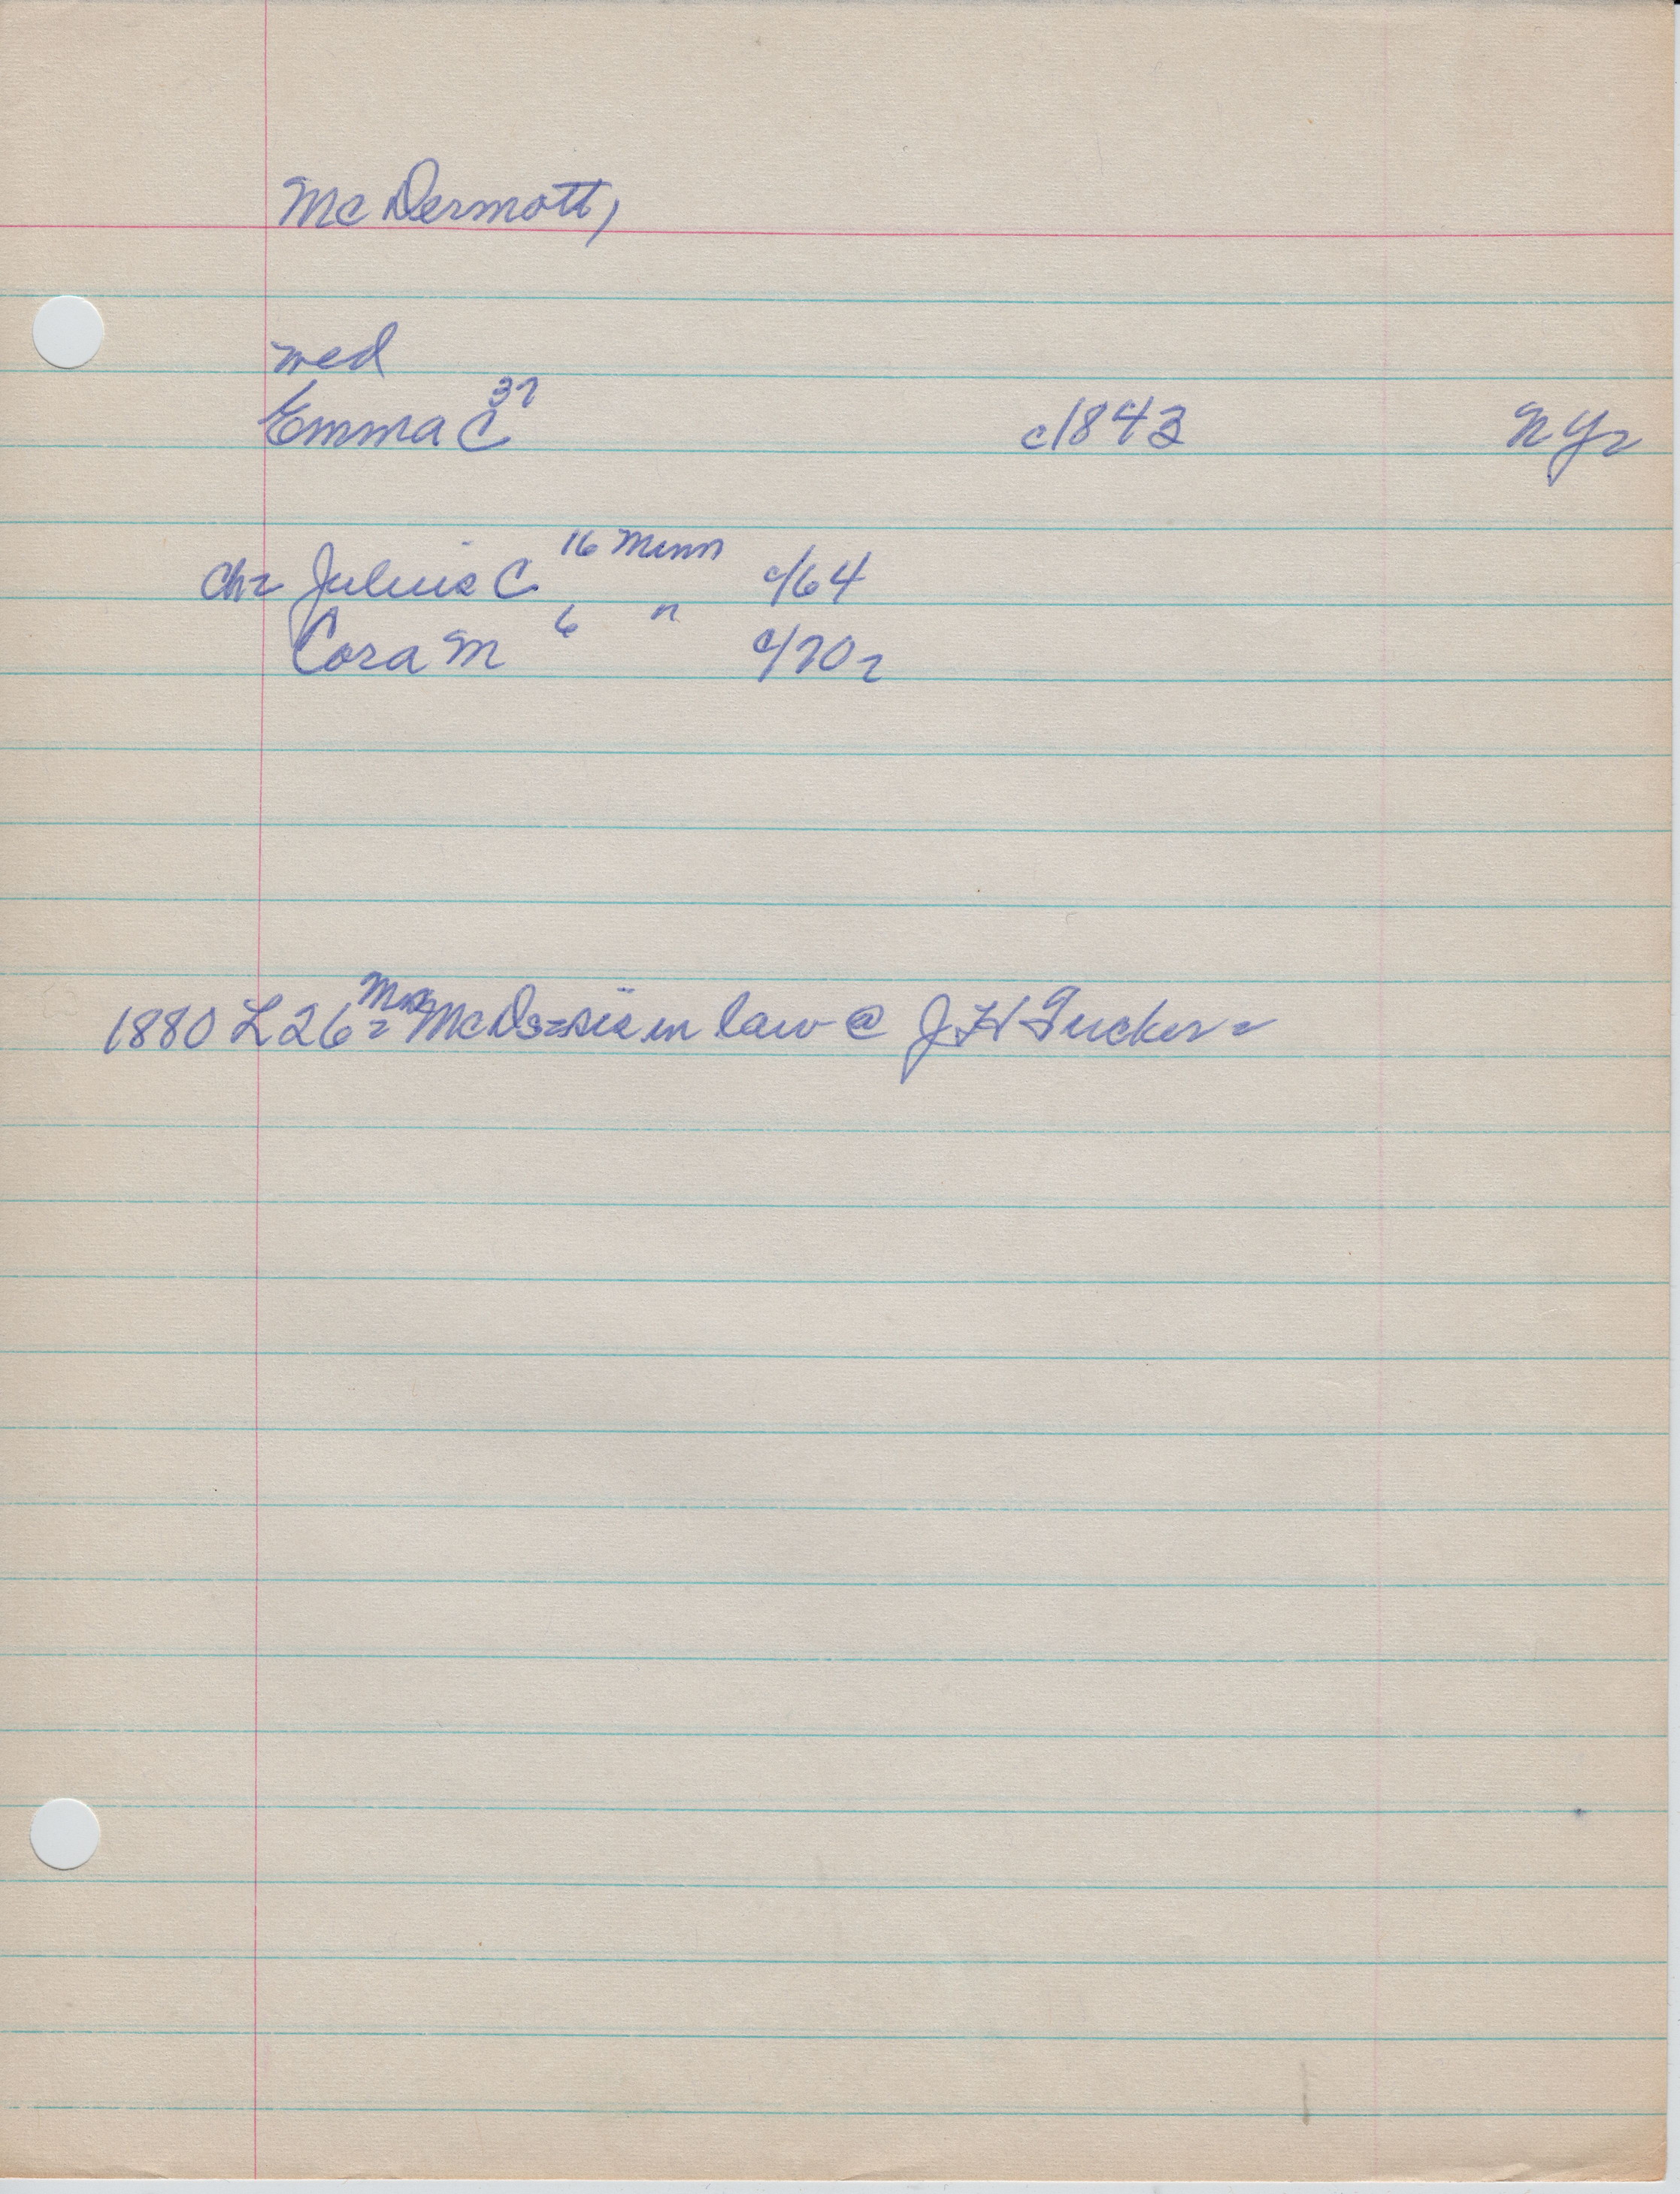 McDermott,
wed
Emma C 37 c1843 NY.
ch. Julius C 16 Minn c/64
Cora M 6 " c/70.
1880 L26. Mrs McD. sis in law @ J H Tucker.